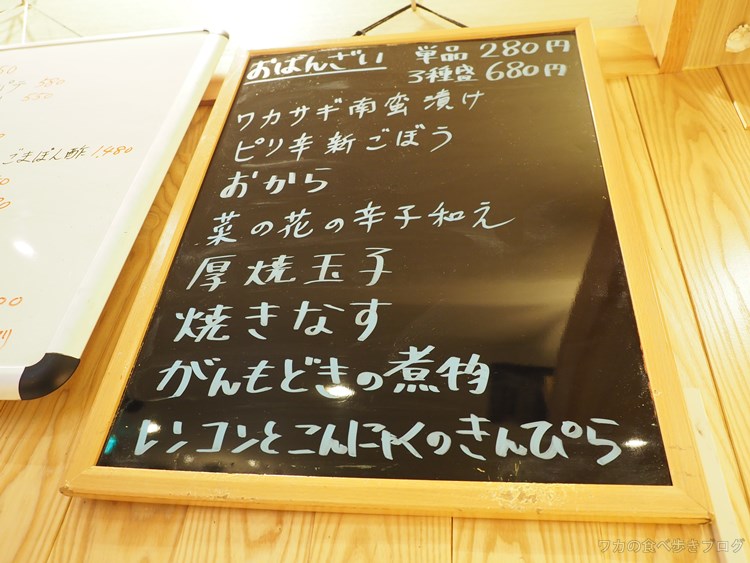 おばんざい 単品 280円
3種盛 680円
ワカサギ南蛮漬け
ピリ辛新ごぼう
おから
菜の花の辛子和え
厚焼玉子
焼きなす
がんもどきの煮物
レンコンとこんにゃくのきんぴら
580
550
ごまぽん酢 1,480
ワカの食べ歩きブログ